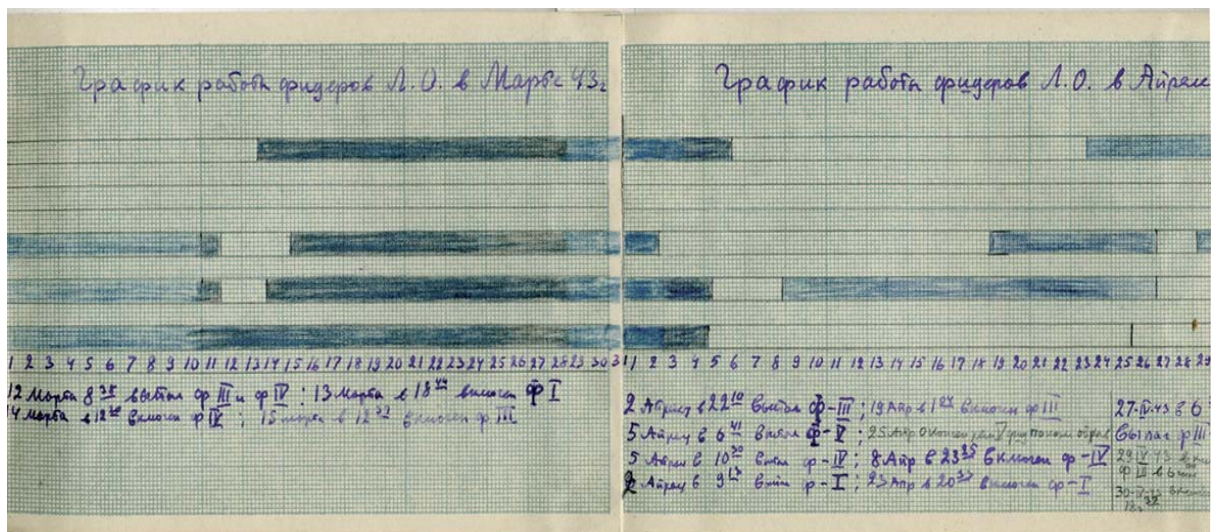 График работы фидеров Л.О. в Марте 43г
1 2 3 4 5 6 7 8 9 10 11 12 13 14 15 16 17 18 19 20 21 22 23 24 25 26 27 28 29 30 31
12 Марта 8 35 выбыл ф III и ф IV ; 13 Марта в 18 44 включен ф I
14 марта в 12 включен ф IV ; 15 марта в 12 включен ф III
График работы фидеров Л.О. в Апреле
1 2 3 4 5 6 7 8 9 10 11 12 13 14 15 16 17 18 19 20 21 22 23 24 25 26 27 28 29
2 Апрел в 22 10 выбыл ф-III ; 19 Апр в 1 включен ф III
5 Апрел в 6 41 выбыл ф-V ; 25 Апр
5 Апрел в 10 30 выбыл ф-IV ; 8 Апр в 23 25 включен ф-IV
Апрел в 9 13 ф-I ; 23 Апр в 20 33 включен ф-I
27-IV-43 в 6
выпал ф III
29 IV 43
ф III в 6